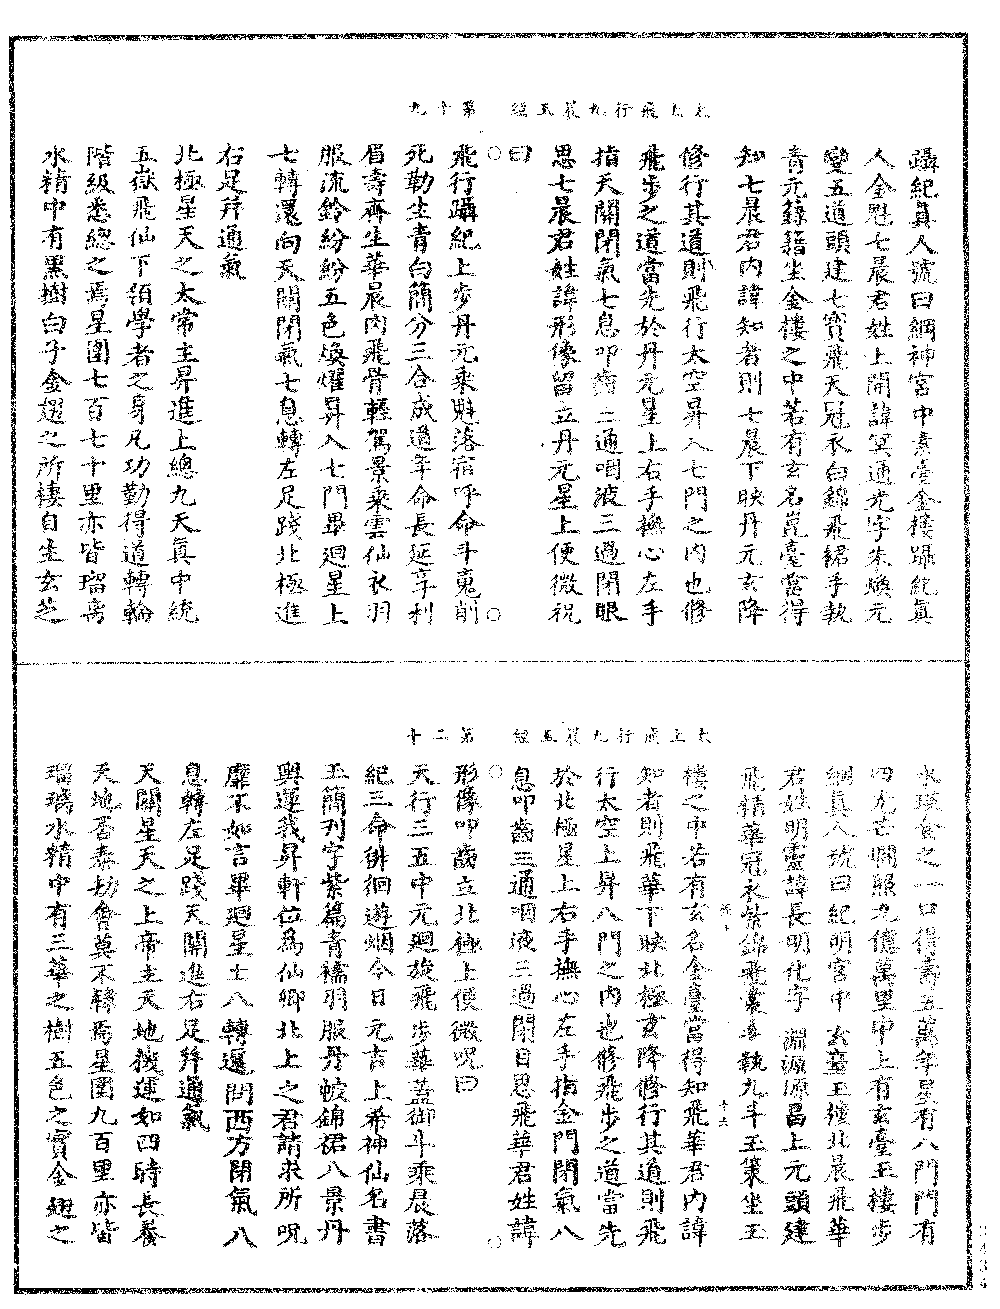 太上飛行九晨玉經　第十九
躡紀眞人號曰綱神宮中素臺金樓躡紀眞
人金魁七晨君姓上開諱冥通光字朱煥元
變五道頭建七寶飛天冠衣白錦飛裙手執
青元錄籍坐金樓之中若有玄名崑臺當得
知七晨君內諱知者則七晨下映丹元玄降
修行其道則飛行太空昇入七門之內也修
飛步之道當先於丹元星上右手撫心左手
指天關閉氣七息叩齒三通咽液三過閉眼
思七晨君姓諱形像留立丹元星上便微祝
曰
飛行躡紀上步丹元乘魁落宿呼命斗䰟削
死勒生青白簡分三合成道年命長延享利
眉壽齊生華晨內飛骨輕駕景乘雲仙衣羽
服流鈴紛紛五色煥耀昇入七門畢迴星上
七轉還向天關閉氣七息轉左足踐北極進
右足并通氣
北極星天之太常主昇進上總九天眞中統
五嶽飛仙下領學者之身凡功勤得道轉輪
階級悉總之焉星圍七百七十里亦皆瑠璃
水精中有黑樹白子金翅之所棲自生玄芝
太上飛行九晨玉經　第二十
水瑛食之一口得壽五萬年星有八門門有
四光芒㶜照九億萬里中上有玄臺玉樓步
綱眞人號曰紀明宮中玄臺玉樓北晨飛華
君姓明靈諱長明化字淵源源昌上元頭建
飛精華冠衣紫錦飛裳手執九斗玉策坐玉
樓之中若有玄名金臺當得知飛華君內諱
知者則飛華下映北極玄降修行其道則飛
行太空上昇八門之內也修飛步之道當先
於北極星上右手撫心左手指金門閉氣八
息叩齒三通咽液三過閉目思飛華君姓諱
形像叩齒立北極上便微呪曰
天行三五中元迴旋飛步華蓋御斗乘晨落
紀三命徘徊遊烟今日元吉上希神仙名書
玉簡刊字紫篇青襦羽服丹帔錦裙八景丹
輿運我昇軒位爲仙卿北上之君請求所呪
靡不如言畢迴星上八轉還向西方閉氣八
息轉左足踐天關進右足并通氣
天關星天之上帝主天地機運如四時長養
天地否泰劫會莫不隸焉星圍九百里亦皆
瑠璃水精中有三華之樹五色之實金翅之